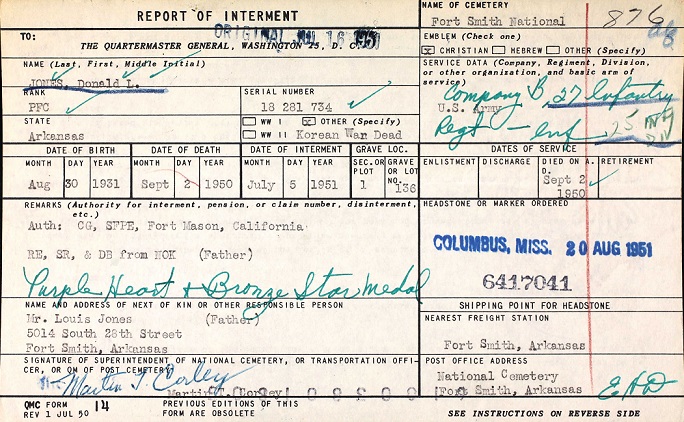 REPORT OF INTERMENT
ORIGINAL JUL 16 1951
TO:
THE QUARTERMASTER GENERAL, WASHINGTON 25, D. C.
NAME OF CEMETERY
Fort Smith National
876
EMBLEM (Check one)
x CHRISTIAN HEBREW OTHER (Specify)
NAME (Last, First, Middle Initial)
JONES, Donald L.
SERVICE DATA (Company, Regiment, Division, or other organization, and basic arm of service)
Company B, 27 Infantry
U.S. Army
Regt - Inf 25 Inf Div
RANK
PFC
SERIAL NUMBER
18 281 734
STATE
Arkansas
WW I x OTHER (Specify)
WW II Korean War Dead
DATE OF BIRTH DATE OF DEATH DATE OF INTERMENT GRAVE LOC. DATES OF SERVICE
MONTH DAY YEAR MONTH DAY YEAR MONTH DAY YEAR SEC. OR PLOT GRAVE OR LOT NO. ENLISTMENT DISCHARGE DIED ON A. D. RETIREMENT
Aug 30 1931 Sept 2 1950 July 5 1951 1 136 Sept 2 1950
REMARKS (Authority for interment, pension, or claim number, disinterment, etc.)
Auth: CG, SFPE, Fort Mason, California
RE, SR, & DB from NOK (Father)
Purple Heart & Bronze Star Medal
HEADSTONE OR MARKER ORDERED
COLUMBUS, MISS. 20 AUG 1951
6417041
NAME AND ADDRESS OF NEXT OF KIN OR OTHER RESPONSIBLE PERSON
Mr. Louis Jones (Father)
5014 South 28th Street
Fort Smith, Arkansas
SHIPPING POINT FOR HEADSTONE
NEAREST FREIGHT STATION
Fort Smith, Arkansas
SIGNATURE OF SUPERINTENDENT OF NATIONAL CEMETERY, OR TRANSPORTATION OFFICER, OR QM OF POST CEMETERY
Martin T. Corley
Martin T. Corley
POST OFFICE ADDRESS
National Cemetery
Fort Smith, Arkansas
EHD
QMC FORM 14
REV 1 JUL 50
PREVIOUS EDITIONS OF THIS
FORM ARE OBSOLETE
SEE INSTRUCTIONS ON REVERSE SIDE